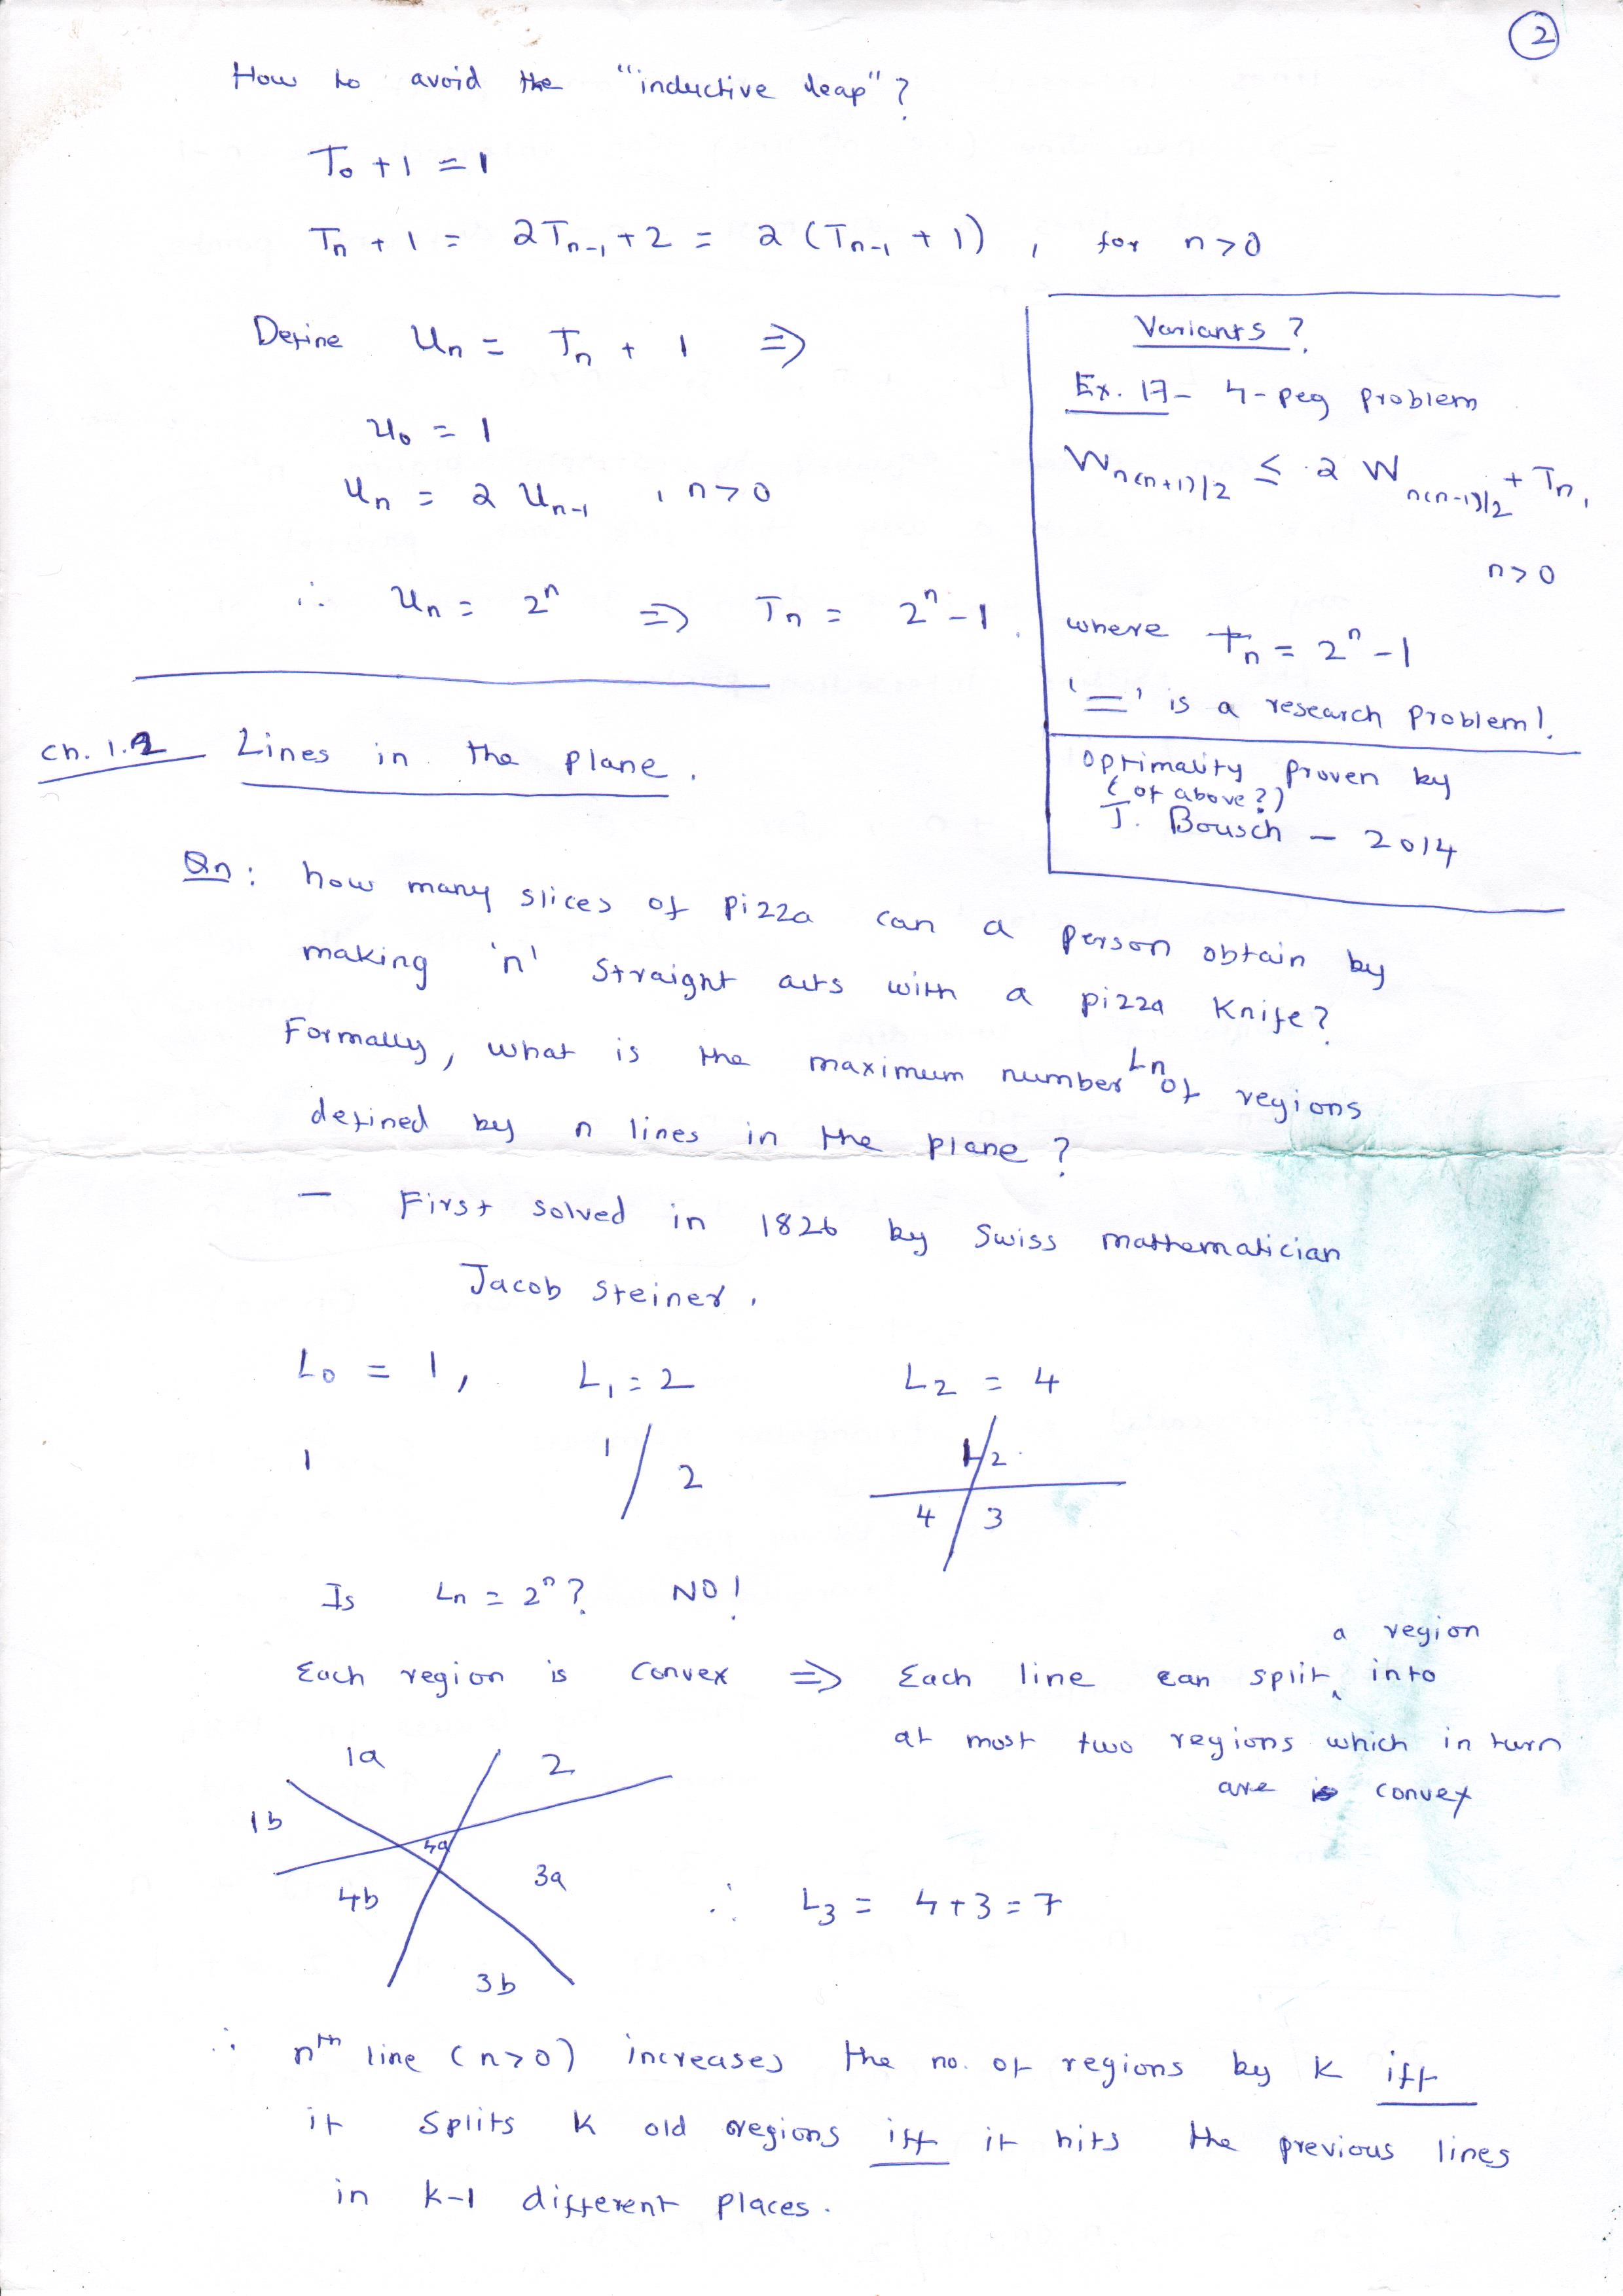 2
How to avoid the "inductive leap"?
T₀ + 1 = 1
Tₙ + 1 = 2Tₙ₋₁ + 2 = 2 (Tₙ₋₁ + 1) , for n>0
Define Uₙ = Tₙ + 1 ⇒
U₀ = 1
Uₙ = 2 Uₙ₋₁ , n>0
∴ Uₙ = 2ⁿ ⇒ Tₙ = 2ⁿ - 1.
Variants?
Ex. 17 - 4-peg problem
W_{n(n+1)/2} ≤ 2 W_{n(n-1)/2} + Tₙ,
n>0
where Tₙ = 2ⁿ - 1
'=' is a research problem!
Optimality proven by
(of above?)
T. Bousch - 2014
Ch. 1.2 Lines in the plane.
Qn: how many slices of pizza can a person obtain by
making 'n' straight cuts with a pizza knife?
Formally, what is the maximum number Lₙ of regions
defined by n lines in the plane?
- First solved in 1826 by Swiss mathematician
Jacob Steiner.
L₀ = 1, L₁ = 2 L₂ = 4
1 1 2 1 2
4 3
Is Lₙ = 2ⁿ? NO!
Each region is convex ⇒ Each line can split a region into
at most two regions which in turn
are convex
1a 2
1b
4a
4b 3a
3b
∴ L₃ = 4+3 = 7
∴ nth line (n>0) increases the no. of regions by k iff
it splits k old regions iff it hits the previous lines
in k-1 different places.